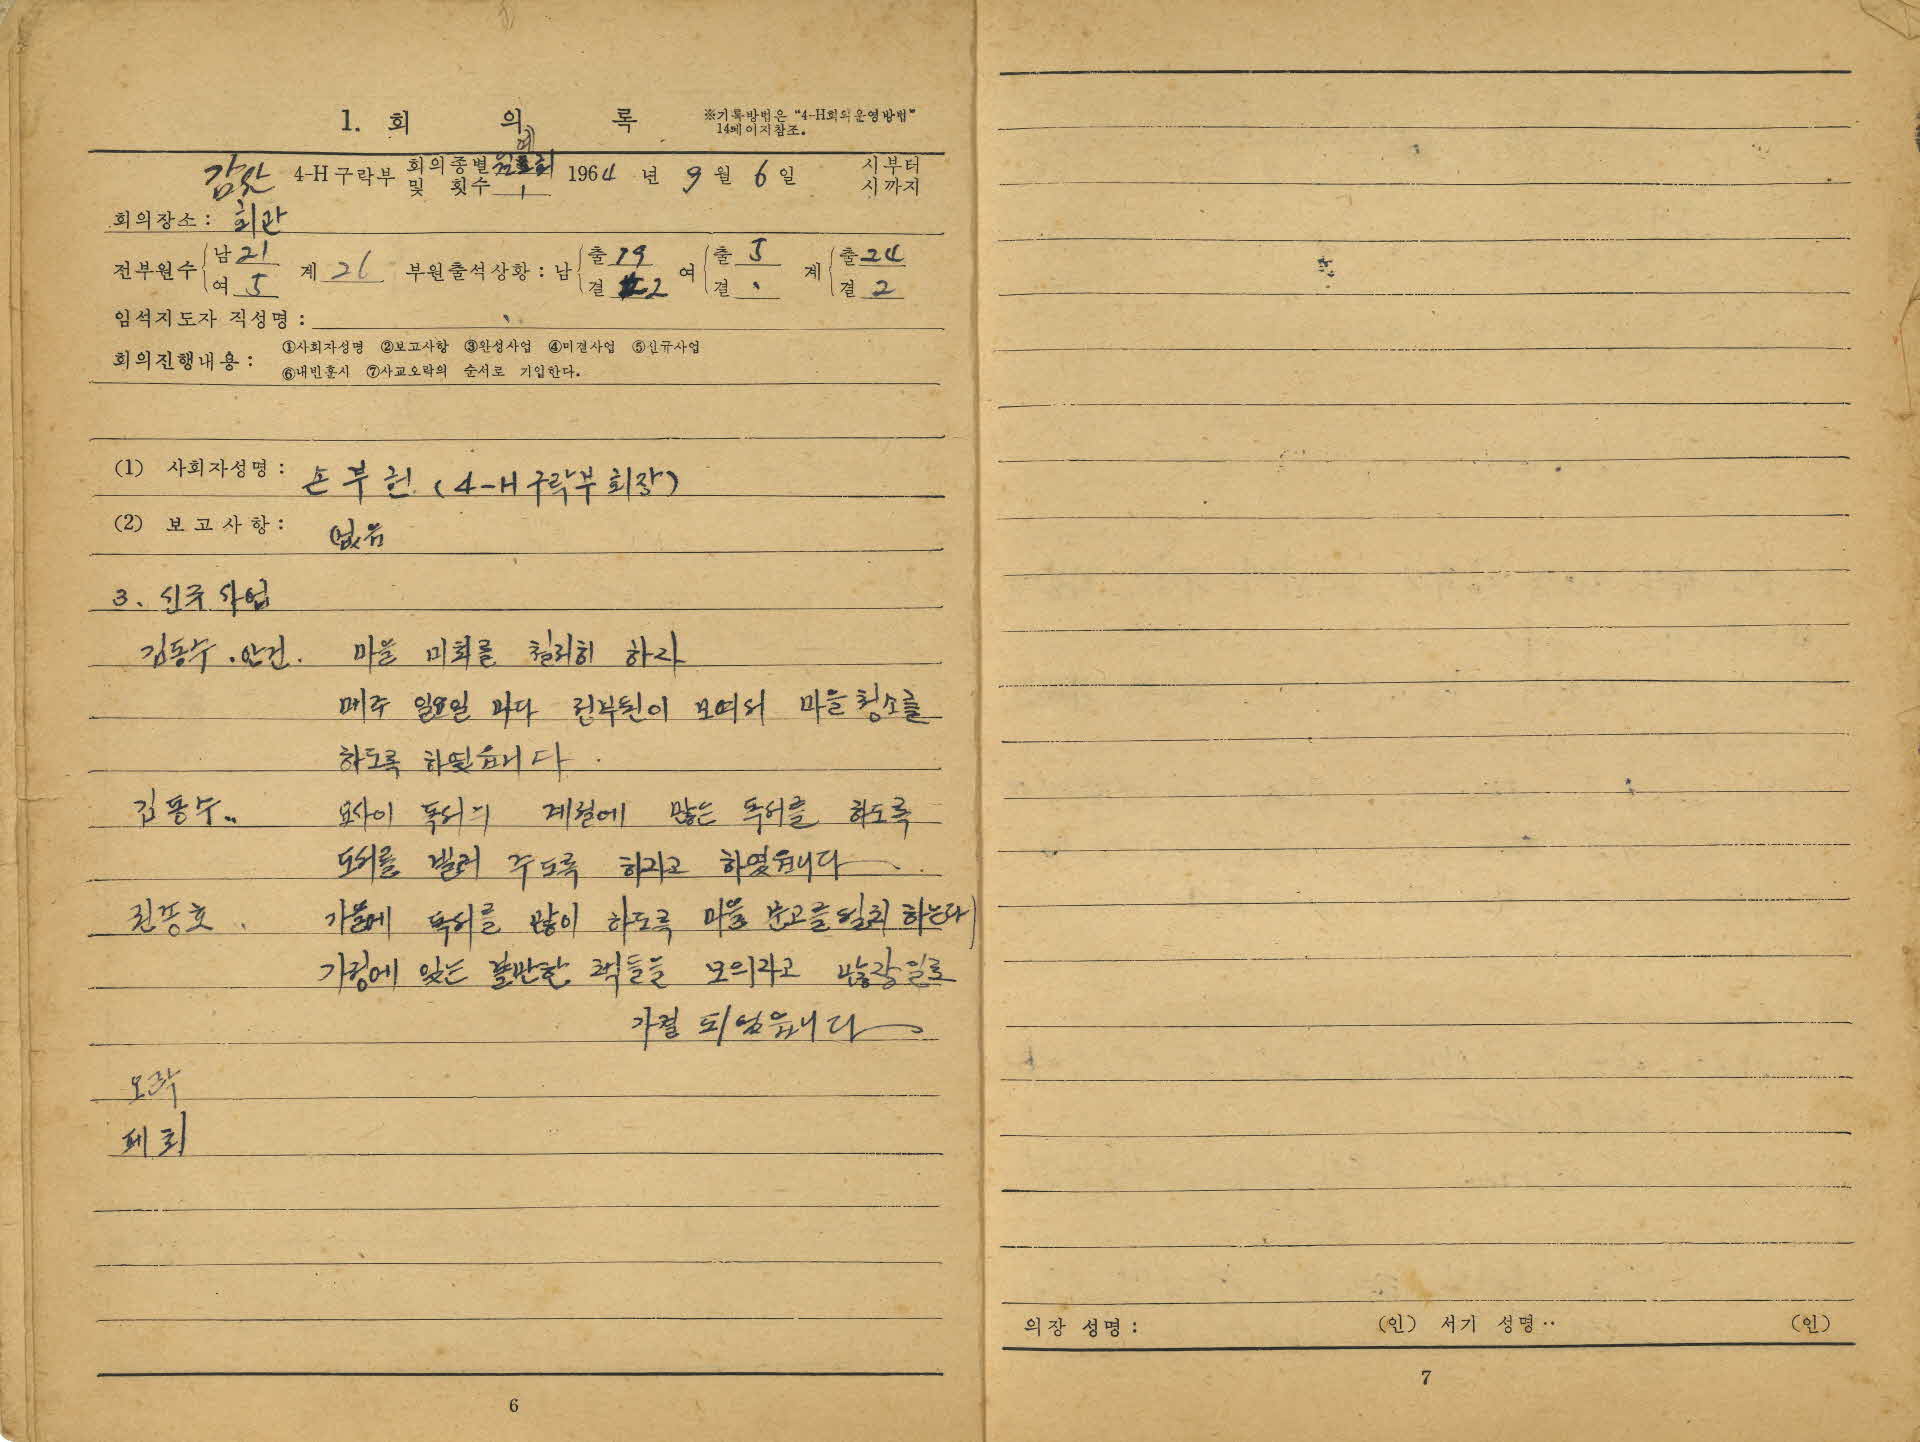 1. 회 의 록
※기록방법은 "4-H회의운영방법"
14페이지참조.
4-H구락부 회의종별 및 횟수 1 1964년 9월 6일 시부터 시까지
회의장소: 회관
전부원수 남 21 여 5 계 26 부원출석상황: 남 출 19 결 2 여 출 5 결 계 출 24 결 2
임석지도자 직성명:
회의진행내용: ①사회자성명 ②보고사항 ③완성사업 ④미결사업 ⑤신규사업
⑥내빈훈시 ⑦사교오락의 순서로 기입한다.
(1) 사회자성명: 손부헌 (4-H구락부 회장)
(2) 보고사항: 없음
3. 신규사업
김동수. 안건. 마을 미화를 철저히 하자
매주 일요일 마다 전부원이 모여서 마을청소를
하도록 하였읍니다.
김동수.. 요사이 독서의 계절에 많은 독서를 하도록
도서를 빌려 주도록 하자고 하였읍니다
가을에 독서를 많이 하도록 마을 문고를 설치 하는다
가정에 있는 볼만한 책들을 모의라고
가결 되었읍니다
오락
폐회
6
의장 성명: (인) 서기 성명‥ (인)
7